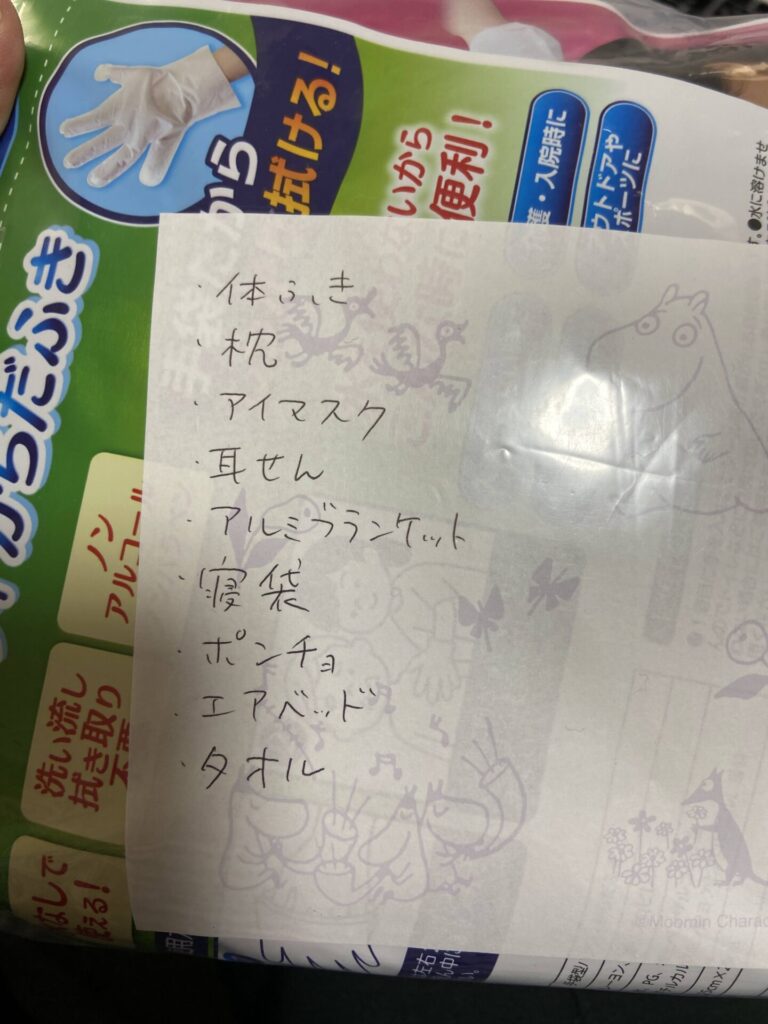 から
拭ける!
いから
便利!
護・入院時に
ウトドアや
ポーツに
●水に溶けませ
からだふき
ノン
アルコール
洗い流し
拭き取り
なしで
使える!
・体ふき
・枕
・アイマスク
・耳せん
・アルミブランケット
・寝袋
・ポンチョ
・エアベッド
・タオル
©Moomin Charac
左右